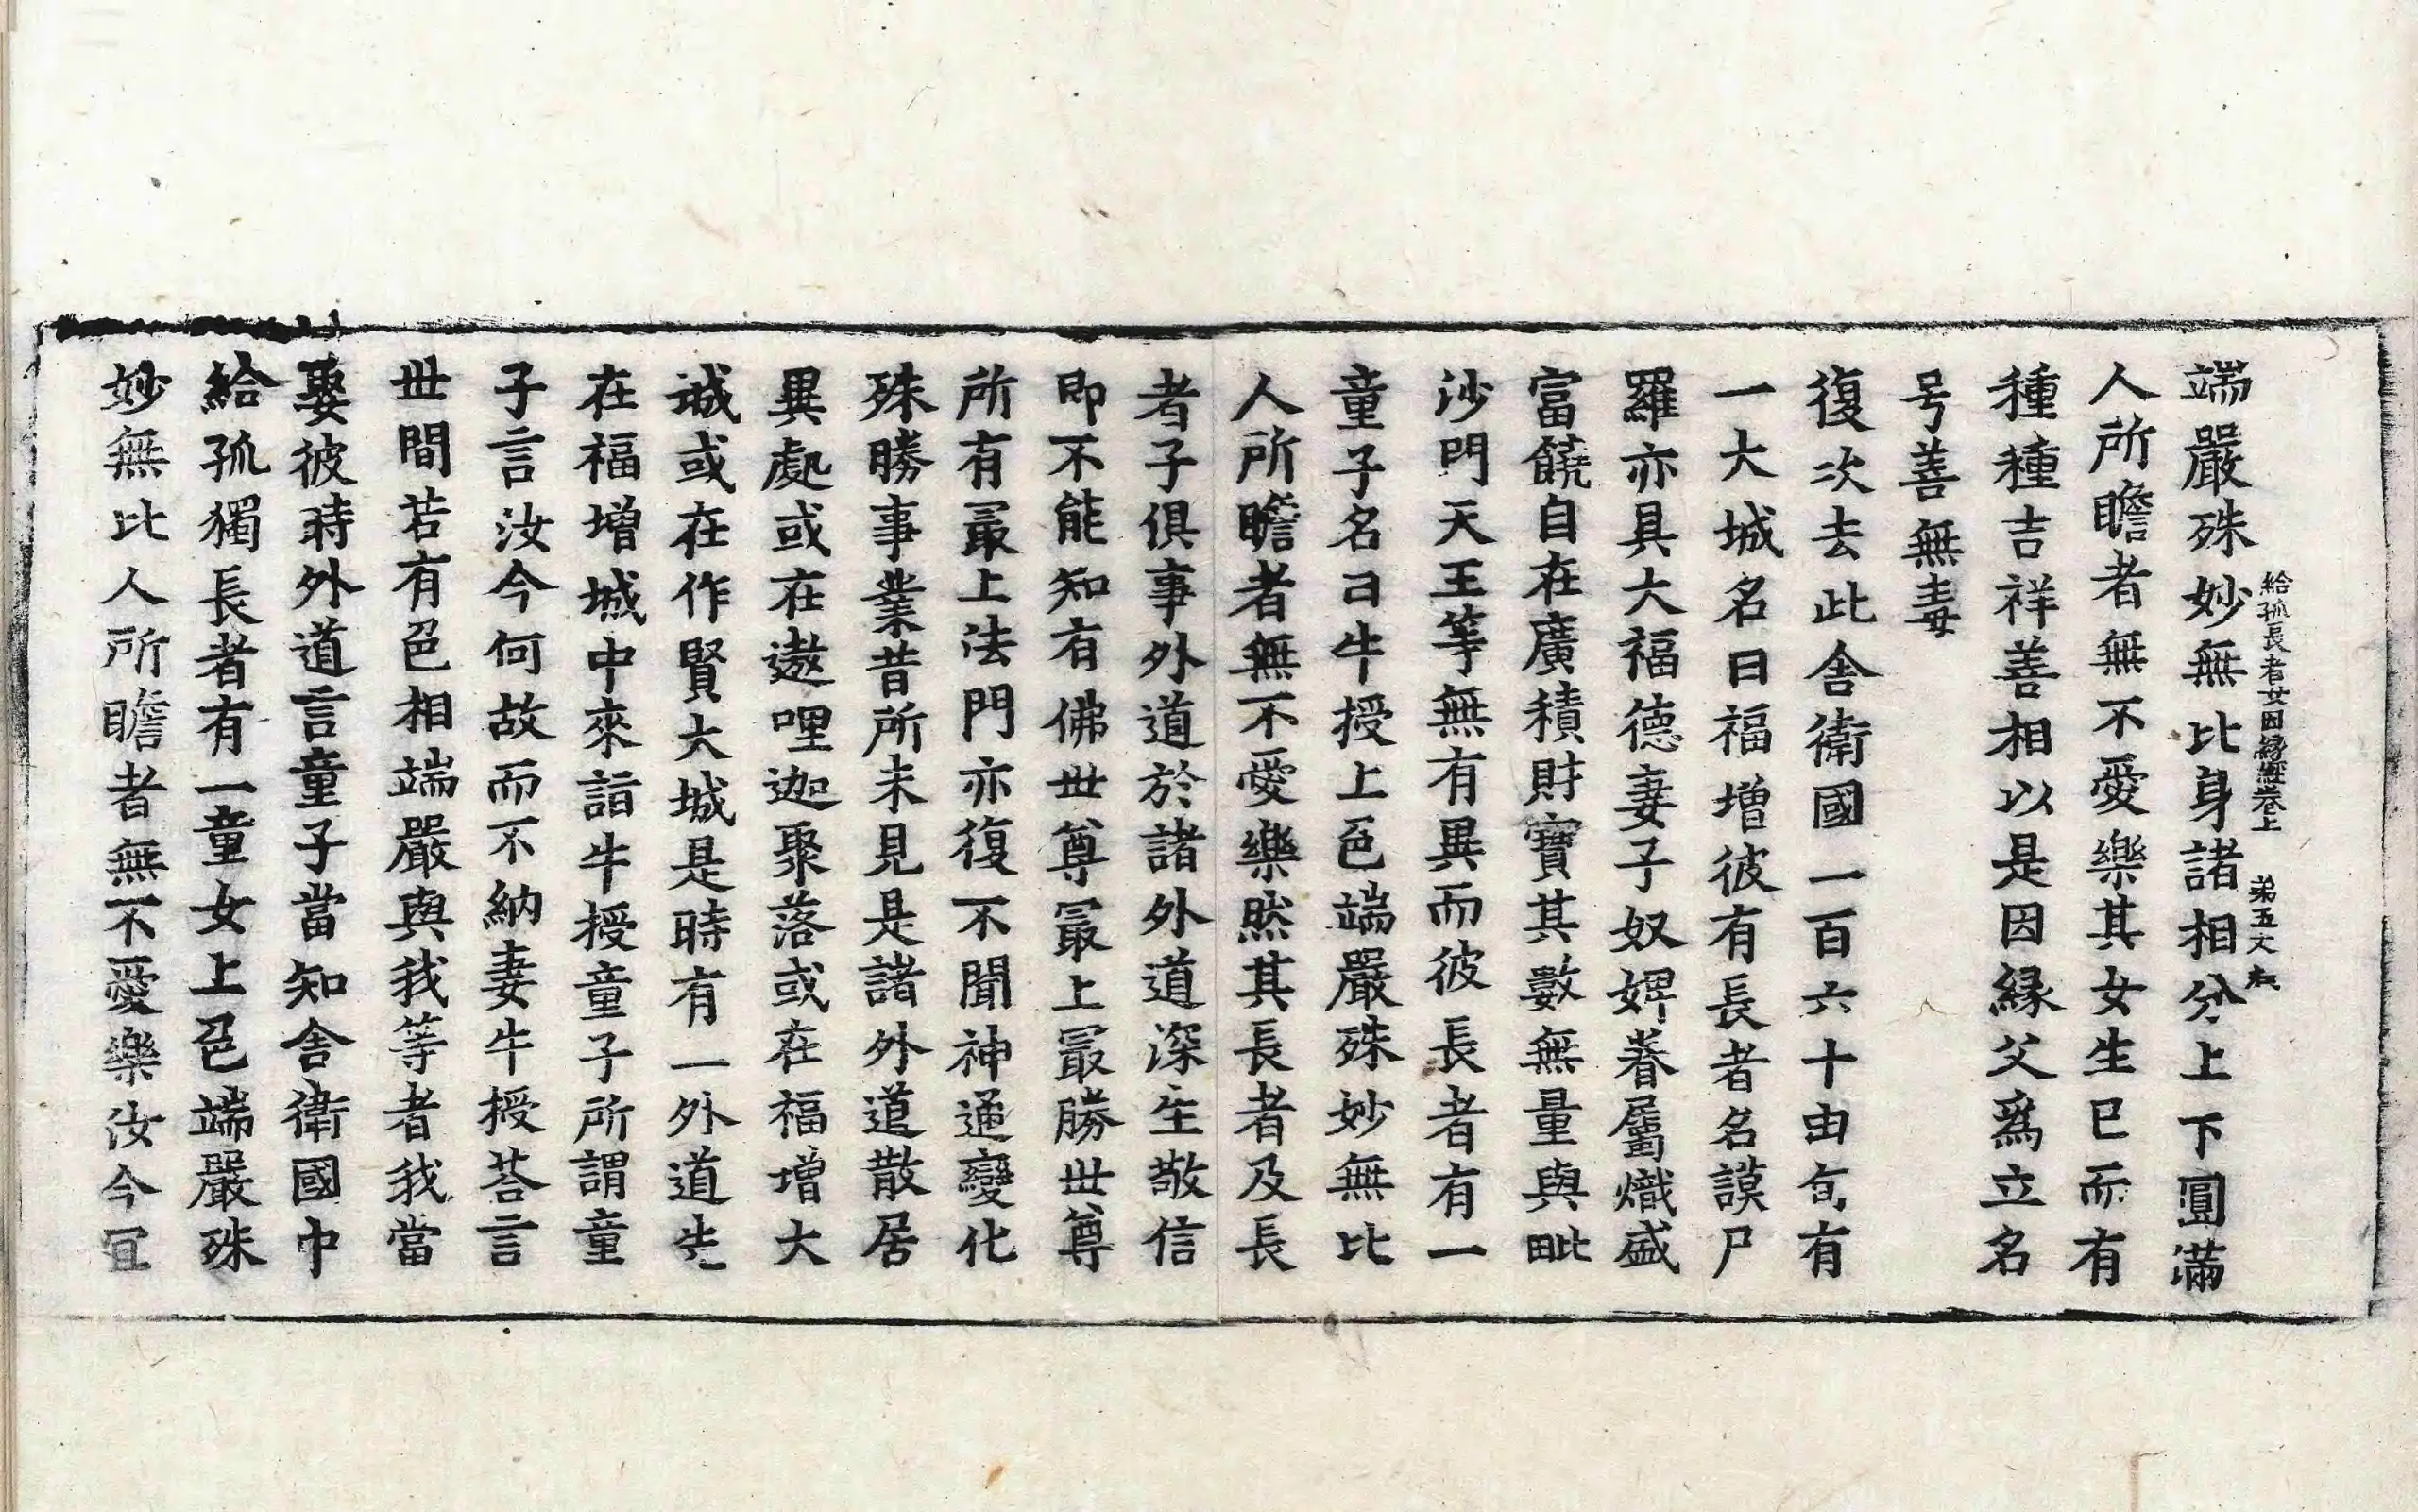 端嚴殊妙無比身諸相分上下圓滿
給孤長者女因緣經卷上 弟五丈
人所瞻者無不愛樂其女生巳而有
種種吉祥善相以是因緣父爲立名
号善無毒
復次去此舍衛國一百六十由旬有
一大城名曰福增彼有長者名謨尸
羅亦具大福德妻子奴婢眷屬熾盛
富饒自在廣積財寶其數無量與毗
沙門天王等無有異而彼長者有一
童子名曰牛授上色端嚴殊妙無比
人所瞻者無不愛樂然其長者及長
者子俱事外道於諸外道深生敬信
即不能知有佛世尊㝡上㝡勝世尊
所有㝡上法門亦復不聞神通變化
殊勝事業昔所未見是諸外道散居
異處或在遨哩迦聚落或在福增大
城或在作賢大城是時有一外道先
在福增城中來詣牛授童子所謂童
子言汝今何故而不納妻牛授荅言
世間若有色相端嚴與我等者我當
娶彼時外道言童子當知舍衛國中
給孤獨長者有一童女上色端嚴殊
妙無比人所瞻者無不愛樂汝今冝